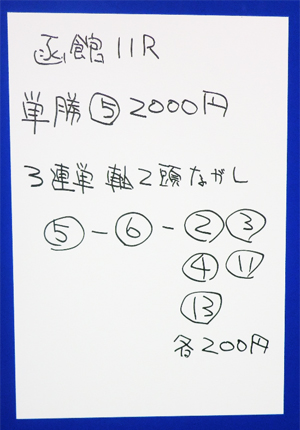 函館11R
単勝⑤2000円
3連単 軸2頭ながし
⑤-⑥-②③
④⑪
⑬
各200円